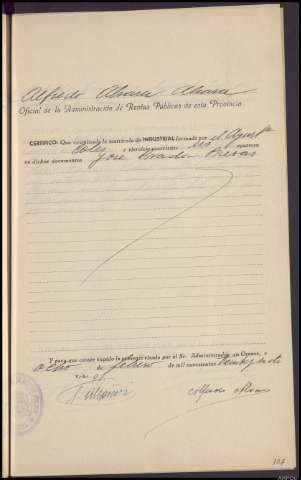 Alfredo Alvarez Alvarez
Oficial de la Administración de Rentas Públicas de esta Provincia
CERTIFICO: Que examinada la matrícula de INDUSTRIAL formada por el Ayunt.º
y ejercicio corriente no aparece
en dichos documentos José Presas
Y para que conste expido la presente visada por el Sr. Administrador en Orense, a
ocho de febrero de mil novecientos
V.º B.º
107